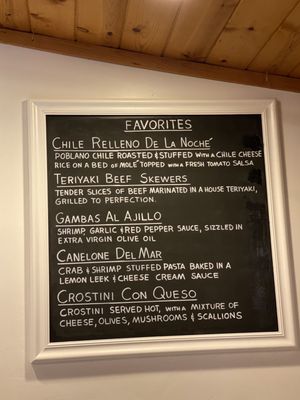 FAVORITES
CHILE RELLENO DE LA NOCHÉ
POBLANO CHILE ROASTED & STUFFED WITH A CHILE CHEESE
RICE ON A BED OF MOLÉ TOPPED WITH A FRESH TOMATO SALSA
TERIYAKI BEEF SKEWERS
TENDER SLICES OF BEEF MARINATED IN A HOUSE TERIYAKI,
GRILLED TO PERFECTION.
GAMBAS AL AJILLO
SHRIMP GARLIC & RED PEPPER SAUCE, SIZZLED IN
EXTRA VIRGIN OLIVE OIL
CANELONE DEL MAR
CRAB & SHRIMP STUFFED PASTA BAKED IN A
LEMON LEEK & CHEESE CREAM SAUCE
CROSTINI CON QUESO
CROSTINI SERVED HOT, WITH A MIXTURE OF
CHEESE, OLIVES, MUSHROOMS & SCALLIONS